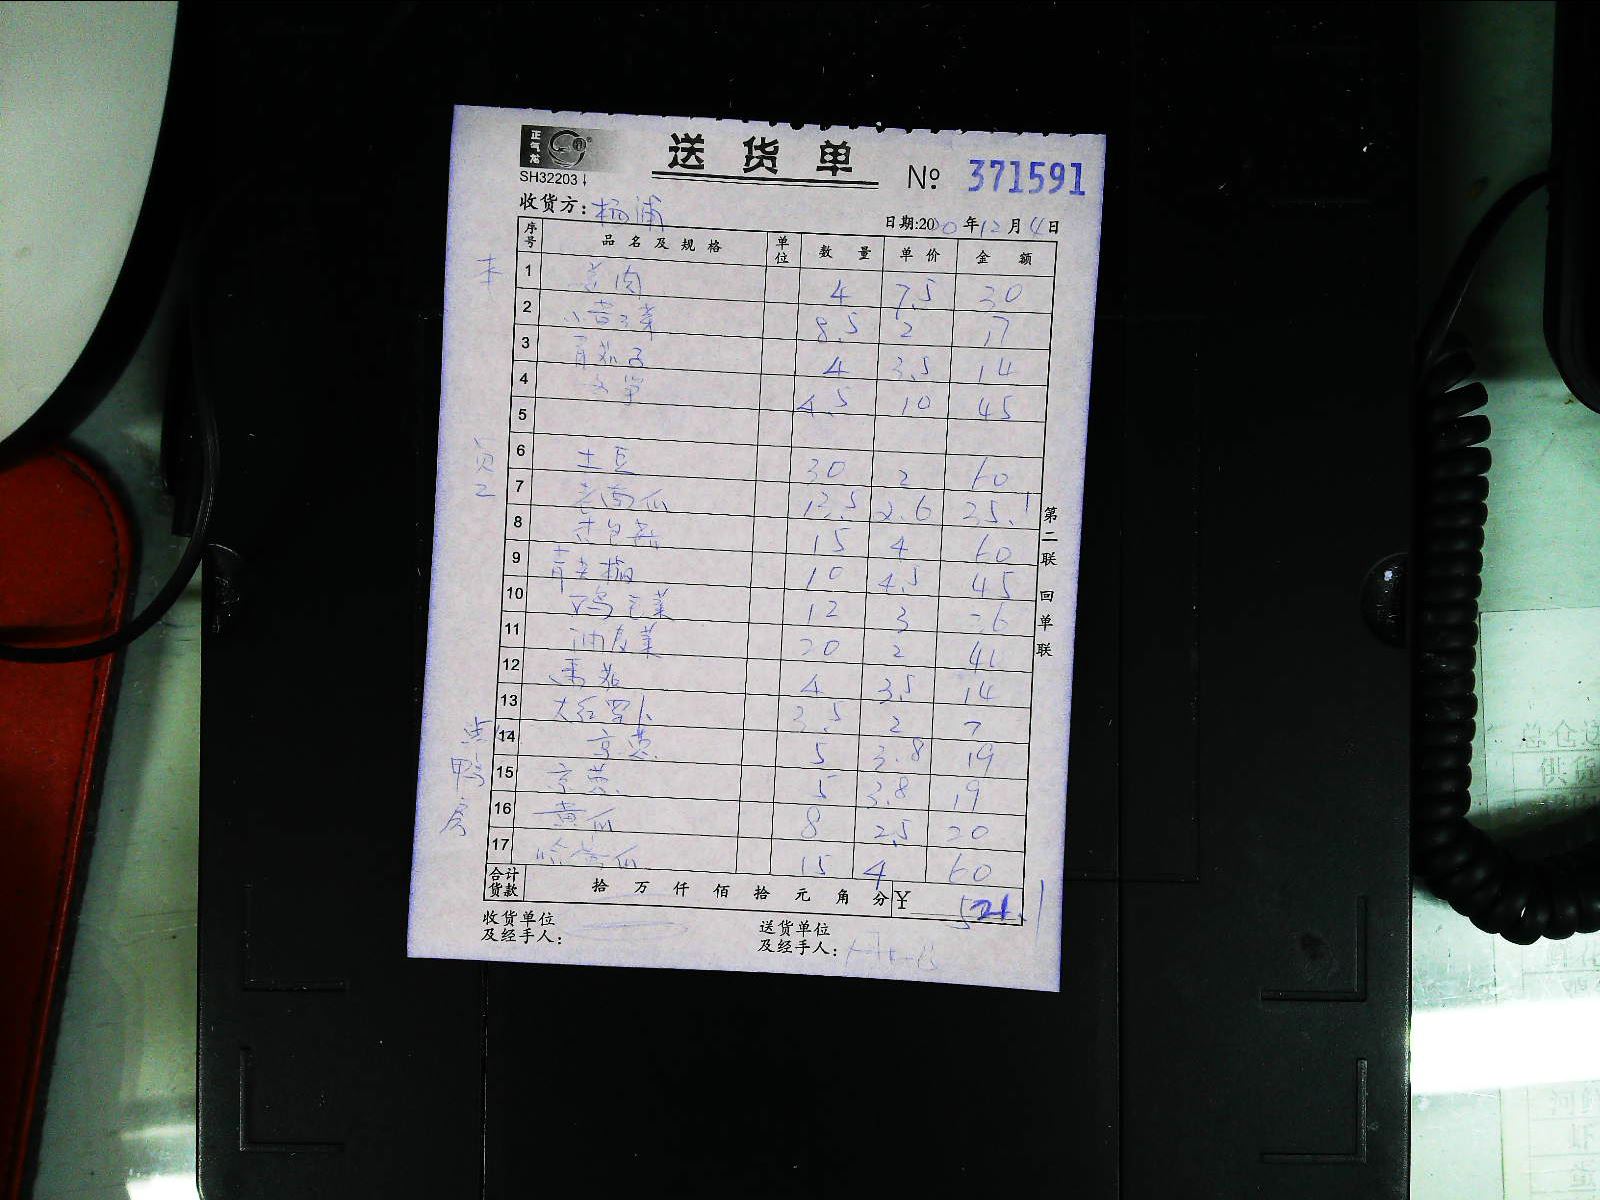 正气龙
SH32203
送货单
№ 371591
收货方: 杨浦
日期:2020年12月4日
序号 品名及规格 单位 数量 单价 金额
1 4 7.5 30
2 8.5 2 17
3 青茄子 4 3.5 14
4 4.5 10 45
5
员工
6 土豆 30 2 60
7 老南瓜 13.5 2.6 35.1
8 15 4 60
9 青尖椒 10 4.5 45
10 鸡毛菜 12 3 36
11 油麦菜 20 2
12 番茄 4 3.5 14
13 大红萝卜 3.5 2 7
14 京葱 5 3.8 19
15 京葱 5 3.8 19
16 黄瓜 8 2.5 20
17 哈密瓜 15 4 60
鸭房
合计货款 拾万仟佰拾元角分 ¥ 521.1
收货单位及经手人:
送货单位及经手人:
第二联 回单联
总仓送
供货